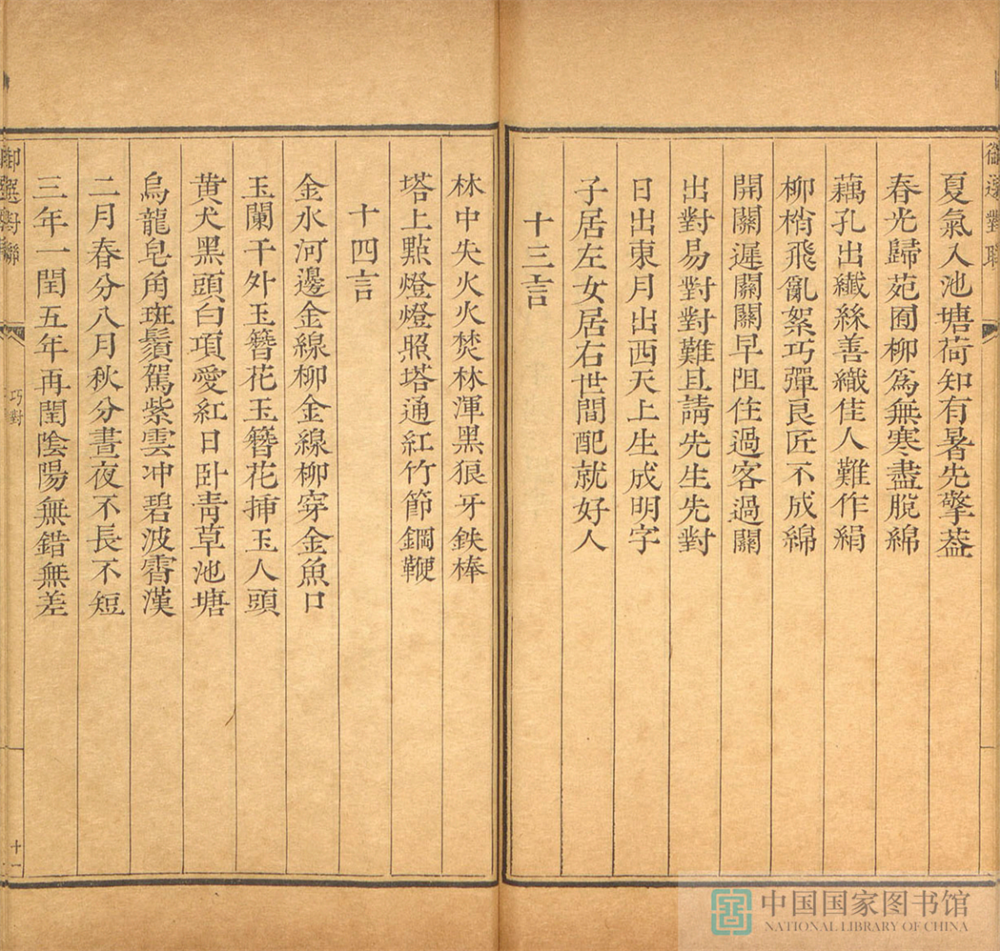 御選對聯
夏氣入池塘荷知有暑先擎蓋
春光歸苑囿柳爲無寒盡脫綿
藕孔出纖絲善織佳人難作絹
柳梢飛亂絮巧彈良匠不成綿
開關遲關關早阻住過客過關
出對易對對難且請先生先對
日出東月出西天上生成明字
子居左女居右世間配就好人
十三言
林中失火火焚林渾黑狼牙鉄棒
塔上點燈燈照塔通紅竹節鋼鞭
十四言
金水河邊金線柳金線柳穿金魚口
玉闌干外玉簪花玉簪花揷玉人頭
黃犬黑頭白項愛紅日卧靑草池塘
烏龍皂角斑鬚駕紫雲冲碧波霄漢
二月春分八月秋分晝夜不長不短
三年一閏五年再閏陰陽無錯無差
御選對聯
巧對
十一
中国国家图书馆
NATIONAL LIBRARY OF CHINA